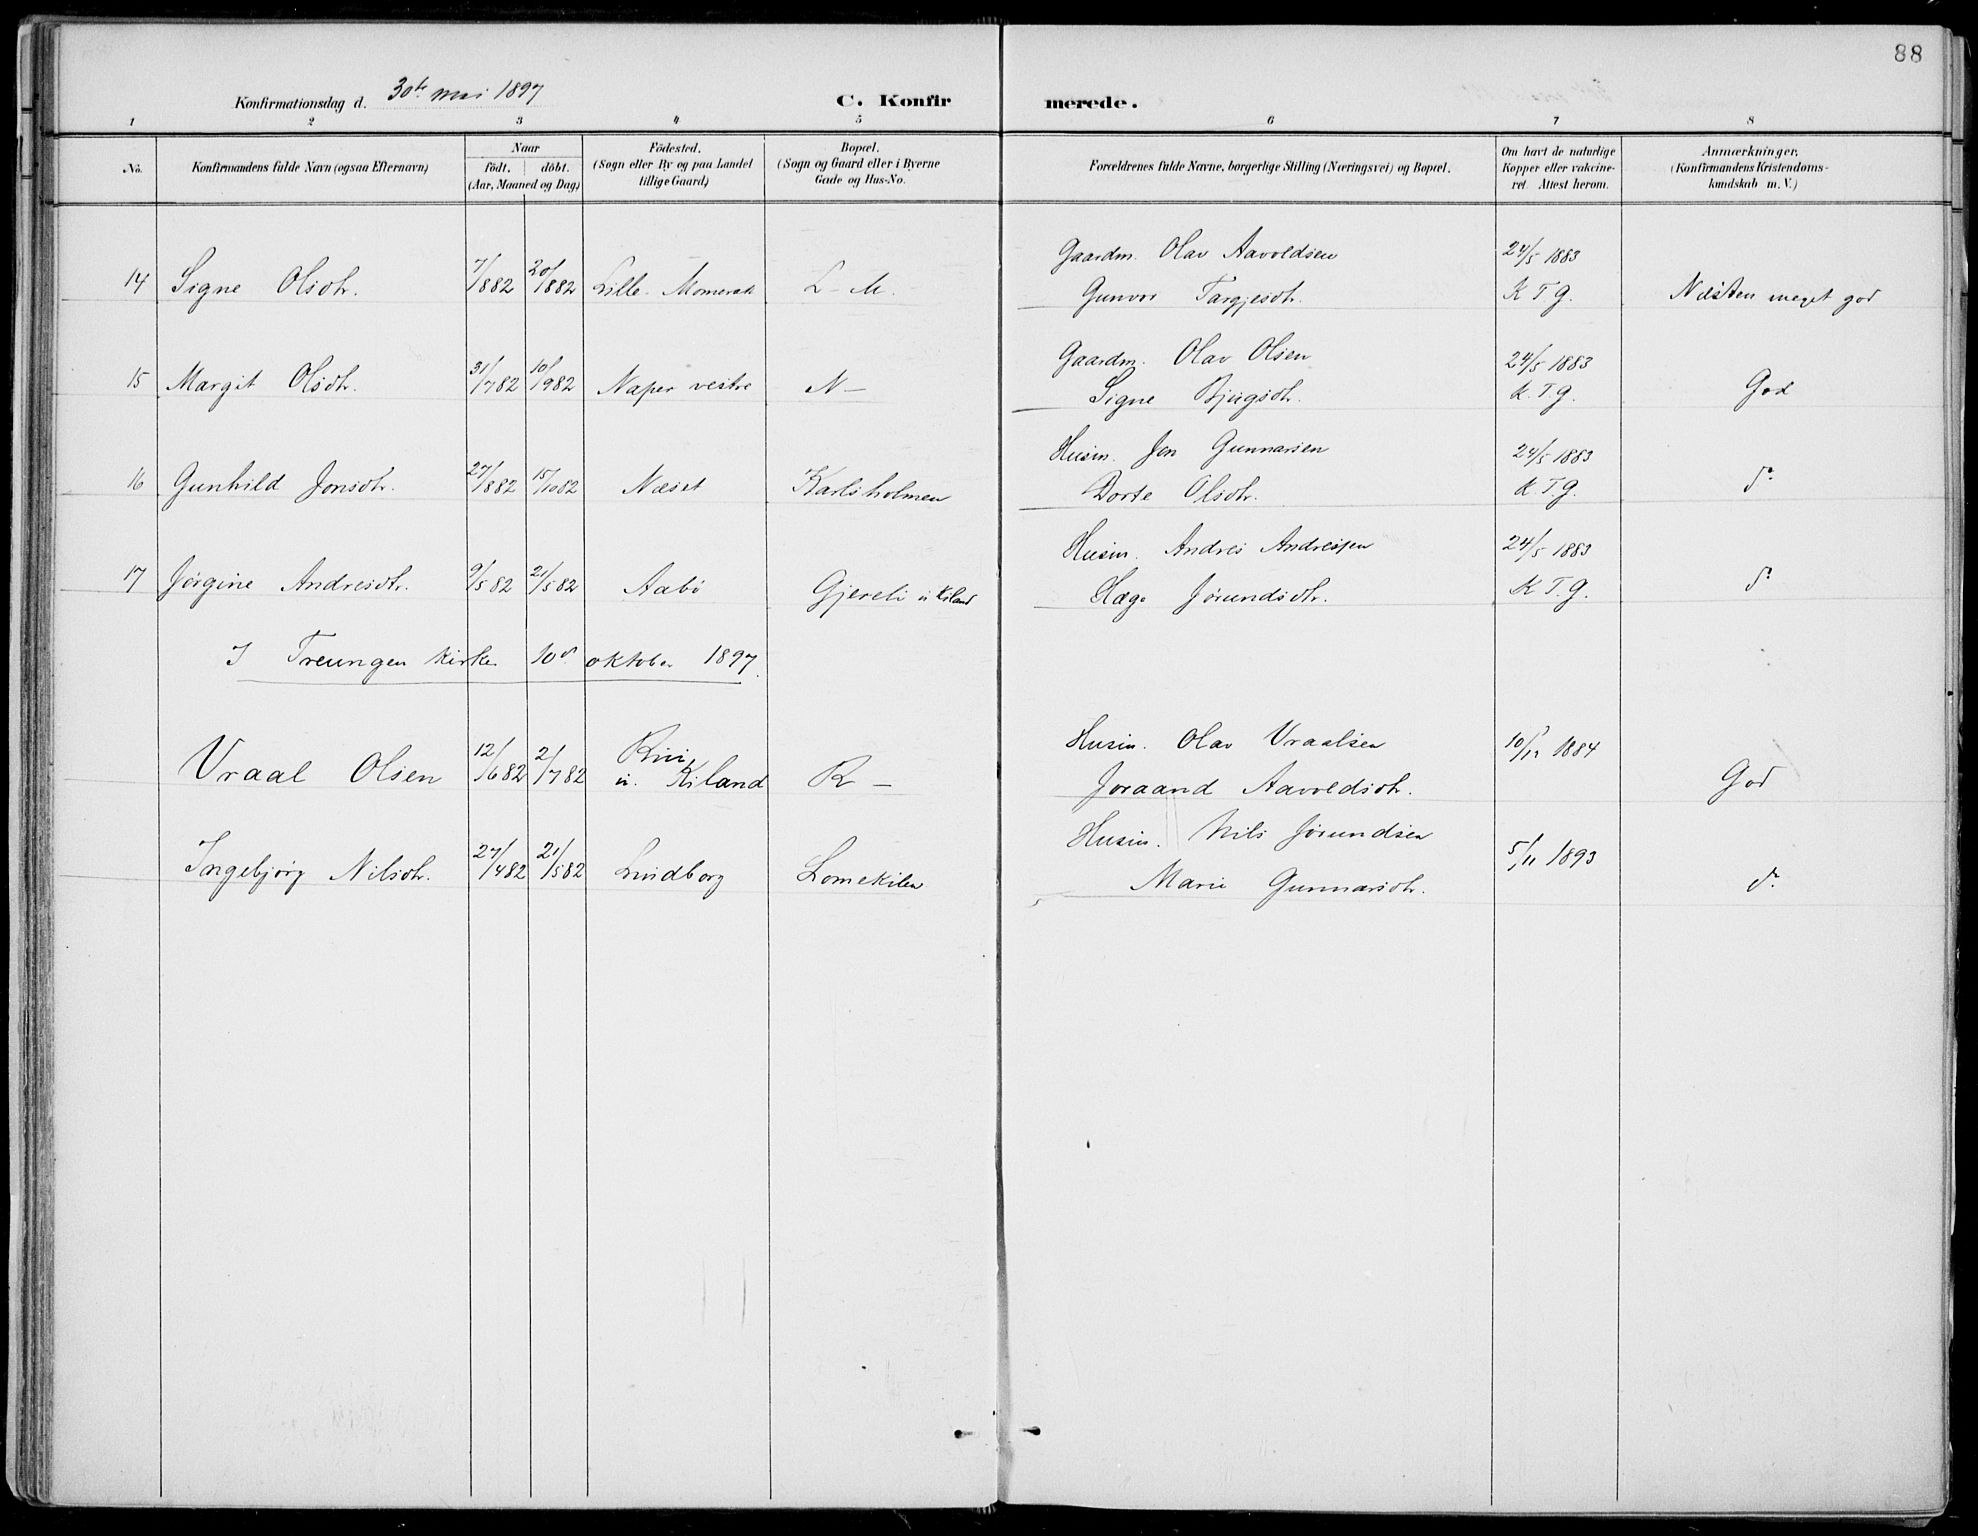 88
Konfirmationsdag d. 30te mai 1897 C. Konfir merede.
1 2 3 4 5 6 7 8
No. Konfirmandens fulde Navn (ogsaa Efternavn) Naar födt. döbt. (Aar, Maaned og Dag) Födested. (Sogn eller By og paa Landet tillige Gaard) Bopæl. (Sogn og Gaard eller i Byerne Gade og Hus-No. Forældrenes fulde Navne, borgerlige Stilling (Næringsvei) og Bopæl. Om havt de naturlige Kopper eller vakcineret. Attest herom. Anmærkninger. (Konfirmandens Kristendomskundskab m. V.)
Gaardm. Olav Aavoldsen 24/5 1883
14 Signe Olsdtr. 7/882 20/882 Lille- Momerak L- M. Gunvor Targjesdtr. K T. G. Næsten meget god
Gaardm. Olav Olsen 24/5 1883
15 Margit Olsdtr. 31/782 10/982 Naper vestre N — Signe Bjugsdtr. K. T. G. God
Husm. Jon Gunnarsen 24/5 1883
16 Gunhild Jonsdtr. 27/882 15/1082 Næset Karlsholmen Dorte Olsdtr. K T. G. do
Husm. Andres Andresen 24/5 1883
17 Jørgine Andresdtr. 9/582 21/582 Aabø Gjereli u Kiland Hæge Jørundsdtr. K T. G. do
I Treungen kirke 10de oktober 1897.
Husm. Olav Vraalsen 10/12 1884
Vraal Olsen 12/682 2/782 Rui, u. Kiland R — Joraand Aavoldsdtr. God
Husm. Nils Jørundsen 5/11 1893
Ingebjørg Nilsdtr. 27/482 21/582 Lindborg Lomekilen Marie Gunnarsdtr. do